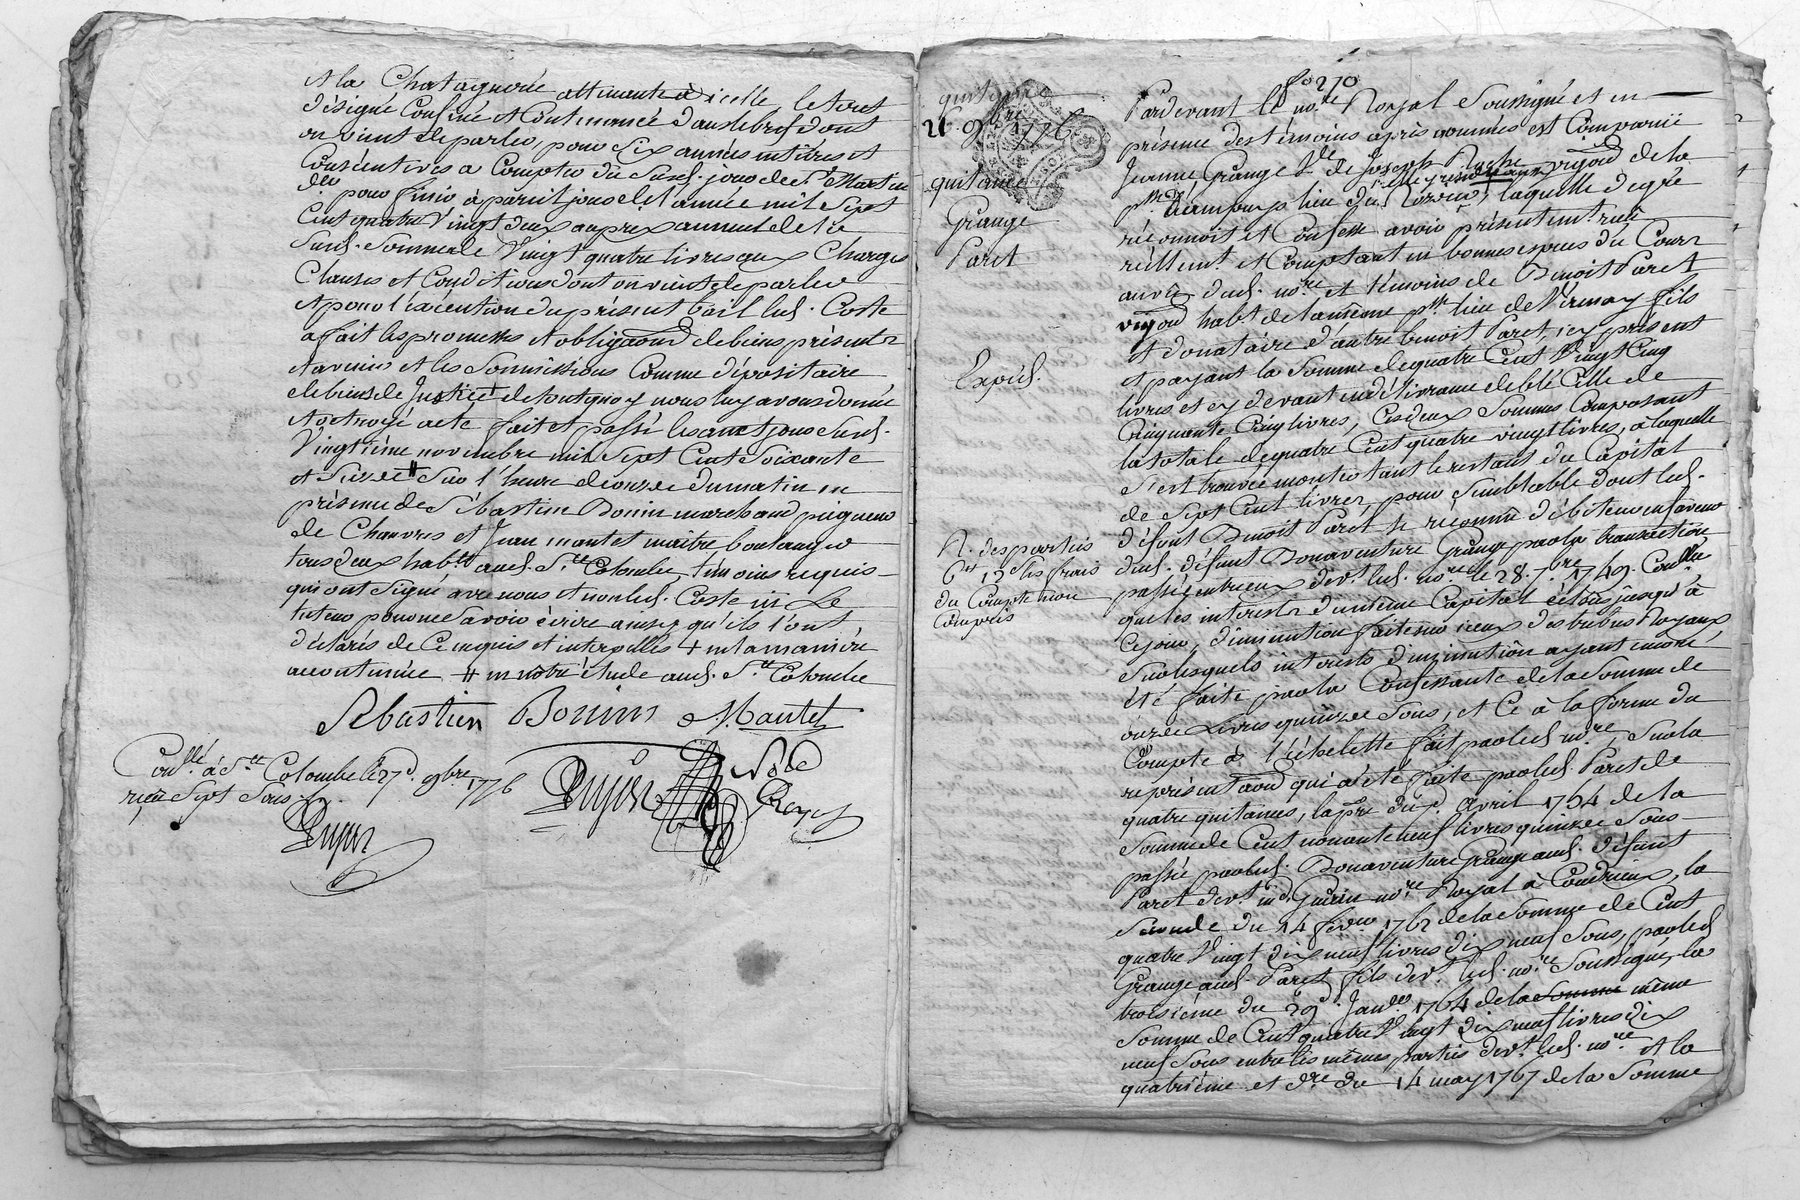 et la Chatagnerée attenante à icelle, le tout
désigné confiné et contenancé dans le bref dont
on vient de parler, pour six années entières et
consécutives à compter du jour de St Martin
pour finir à pareil jour de l'année mil sept
cent quatre vingt deux au prix annuel de la
susd. somme de vingt quatre livres aux charges
clauses et conditions dont on vient de parler
et pour l'exécution du présent bail led. Coste
a fait les promesses et obligaons de biens présents
et avenir et les soumissions comme dépositaire
de biens de justice de tout quoy nous luy avons donné
et octroyé acte fait et passé les an et jour susd.
vingtième novembre mil sept cent soixante
et seize # sur l'heure de onze du matin en
présence de Sébastien Bonin marchand peigneur
de chanvres et Jean mantet maitre boulanger
tous deux habts aud. Ste Colombe témoins requis
qui ont signé avec nous et non led. Coste ni le
pour ne savoir écrire ainsy qu'ils l'ont
déclarés de ce enquis et interpellés + en la manière
accoutumée # en notre étude aud. Ste Colombe
Sébastien Bonin Mantet
Dujon No.re Royal
Conllé à Ste Colombe le 27e 9bre 1776
reçu sept sous
Dujon
fo 270
quittance
21 9bre 1776
quitance
Grange
Paret
Expéd.
R. des parties
6tt 12s les frais
du Compte non
compris
Pardevant le nore Royal soussigné et en
présence des témoins après nommés est comparüe
Jeanne Grange Ve de Joseph vigon de la
psse d'ampuis lieu du rozier, laquelle de gré
reconnoit et confesse avoir présentemt reçu
réellemt et comptant en bonnes espèces du cours
aux d. nore et témoins de Benoit Paret
vigon habt de la même psse lieu de Verenay fils
et donataire d'autre benoit Paret, icy présent
et payant la somme de quatre cent vingt cinq
livres et cy devant en délivrance de blé celle de
cinquante cinq livres, ces deux sommes composant
la totale de quatre cent quatre vingt livres, à laquelle
s'est trouvée monter tant le restant du capital
de sept cent livres, pour semblable dont led.
défunt Benoit Paret se reconnu débiteur en faveur
dud. défunt Bonaventure Grange par la transaction
passée entr'eux devt led. nore le 28. 7bre 1749. Conllée
que les interests d'un même capital échus jusqu'à
ce jour, diminution faite sur iceux des tributs Royaux
sur lesquels interests diminution ayant encore
été faite par la confessante de la somme de
onze livres quinze sous, et ce à la forme du
compte à l'échelette fait par led. nore, sur la
représentaon qui a été faite par led. Paret de
quatre quitances, la pre du avril 1754 de la
somme de cent nonante neuf livres quinze sous
passée par led. Bonaventure Grange aud. défunt
Paret devt me Guérin nore Royal à Condrieux, la
seconde du 14 fevrer 1762 de la somme de cent
quatre vingt dix neuf livres dix neuf sous, par led.
Grange aud. Paret fils devt led. nore soussigné, la
troisième du 29e Janer 1764 de la somme même
somme de cent quatre vingt dix neuf livres dix
neuf sous entre les mêmes parties devt led. nore et la
quatrième et dre du 14 may 1767 de la somme